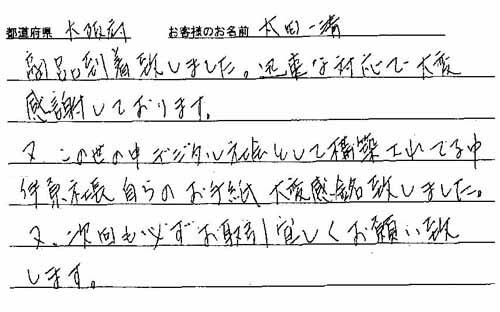 都道府県 大阪府 お客様のお名前 太田一清
副品到着致しました。迅速な対応で大変
感謝しております。
又、この世の中デジタル社会として構築されてる中
伊原社長自らのお手紙 大変感銘致しました。
又、次回も必ずお取引宜しくお願い致
します。